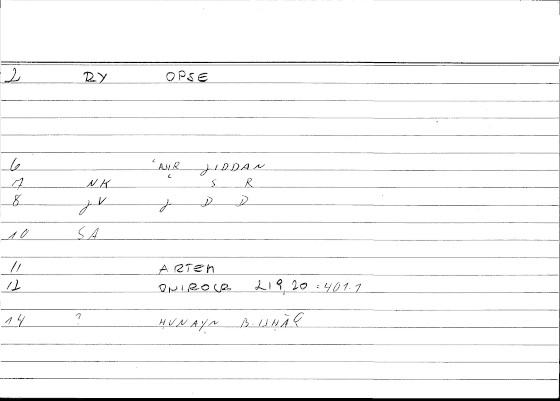 2 RY OPSE
6 ʿAYR JIDDAN
7 NK " S R
8 JV J D D
10 SA
11 ARTEM
12 ONIROCR 219,20 = 401.1
14 ? ḤUNAYN B. ISḤĀQ